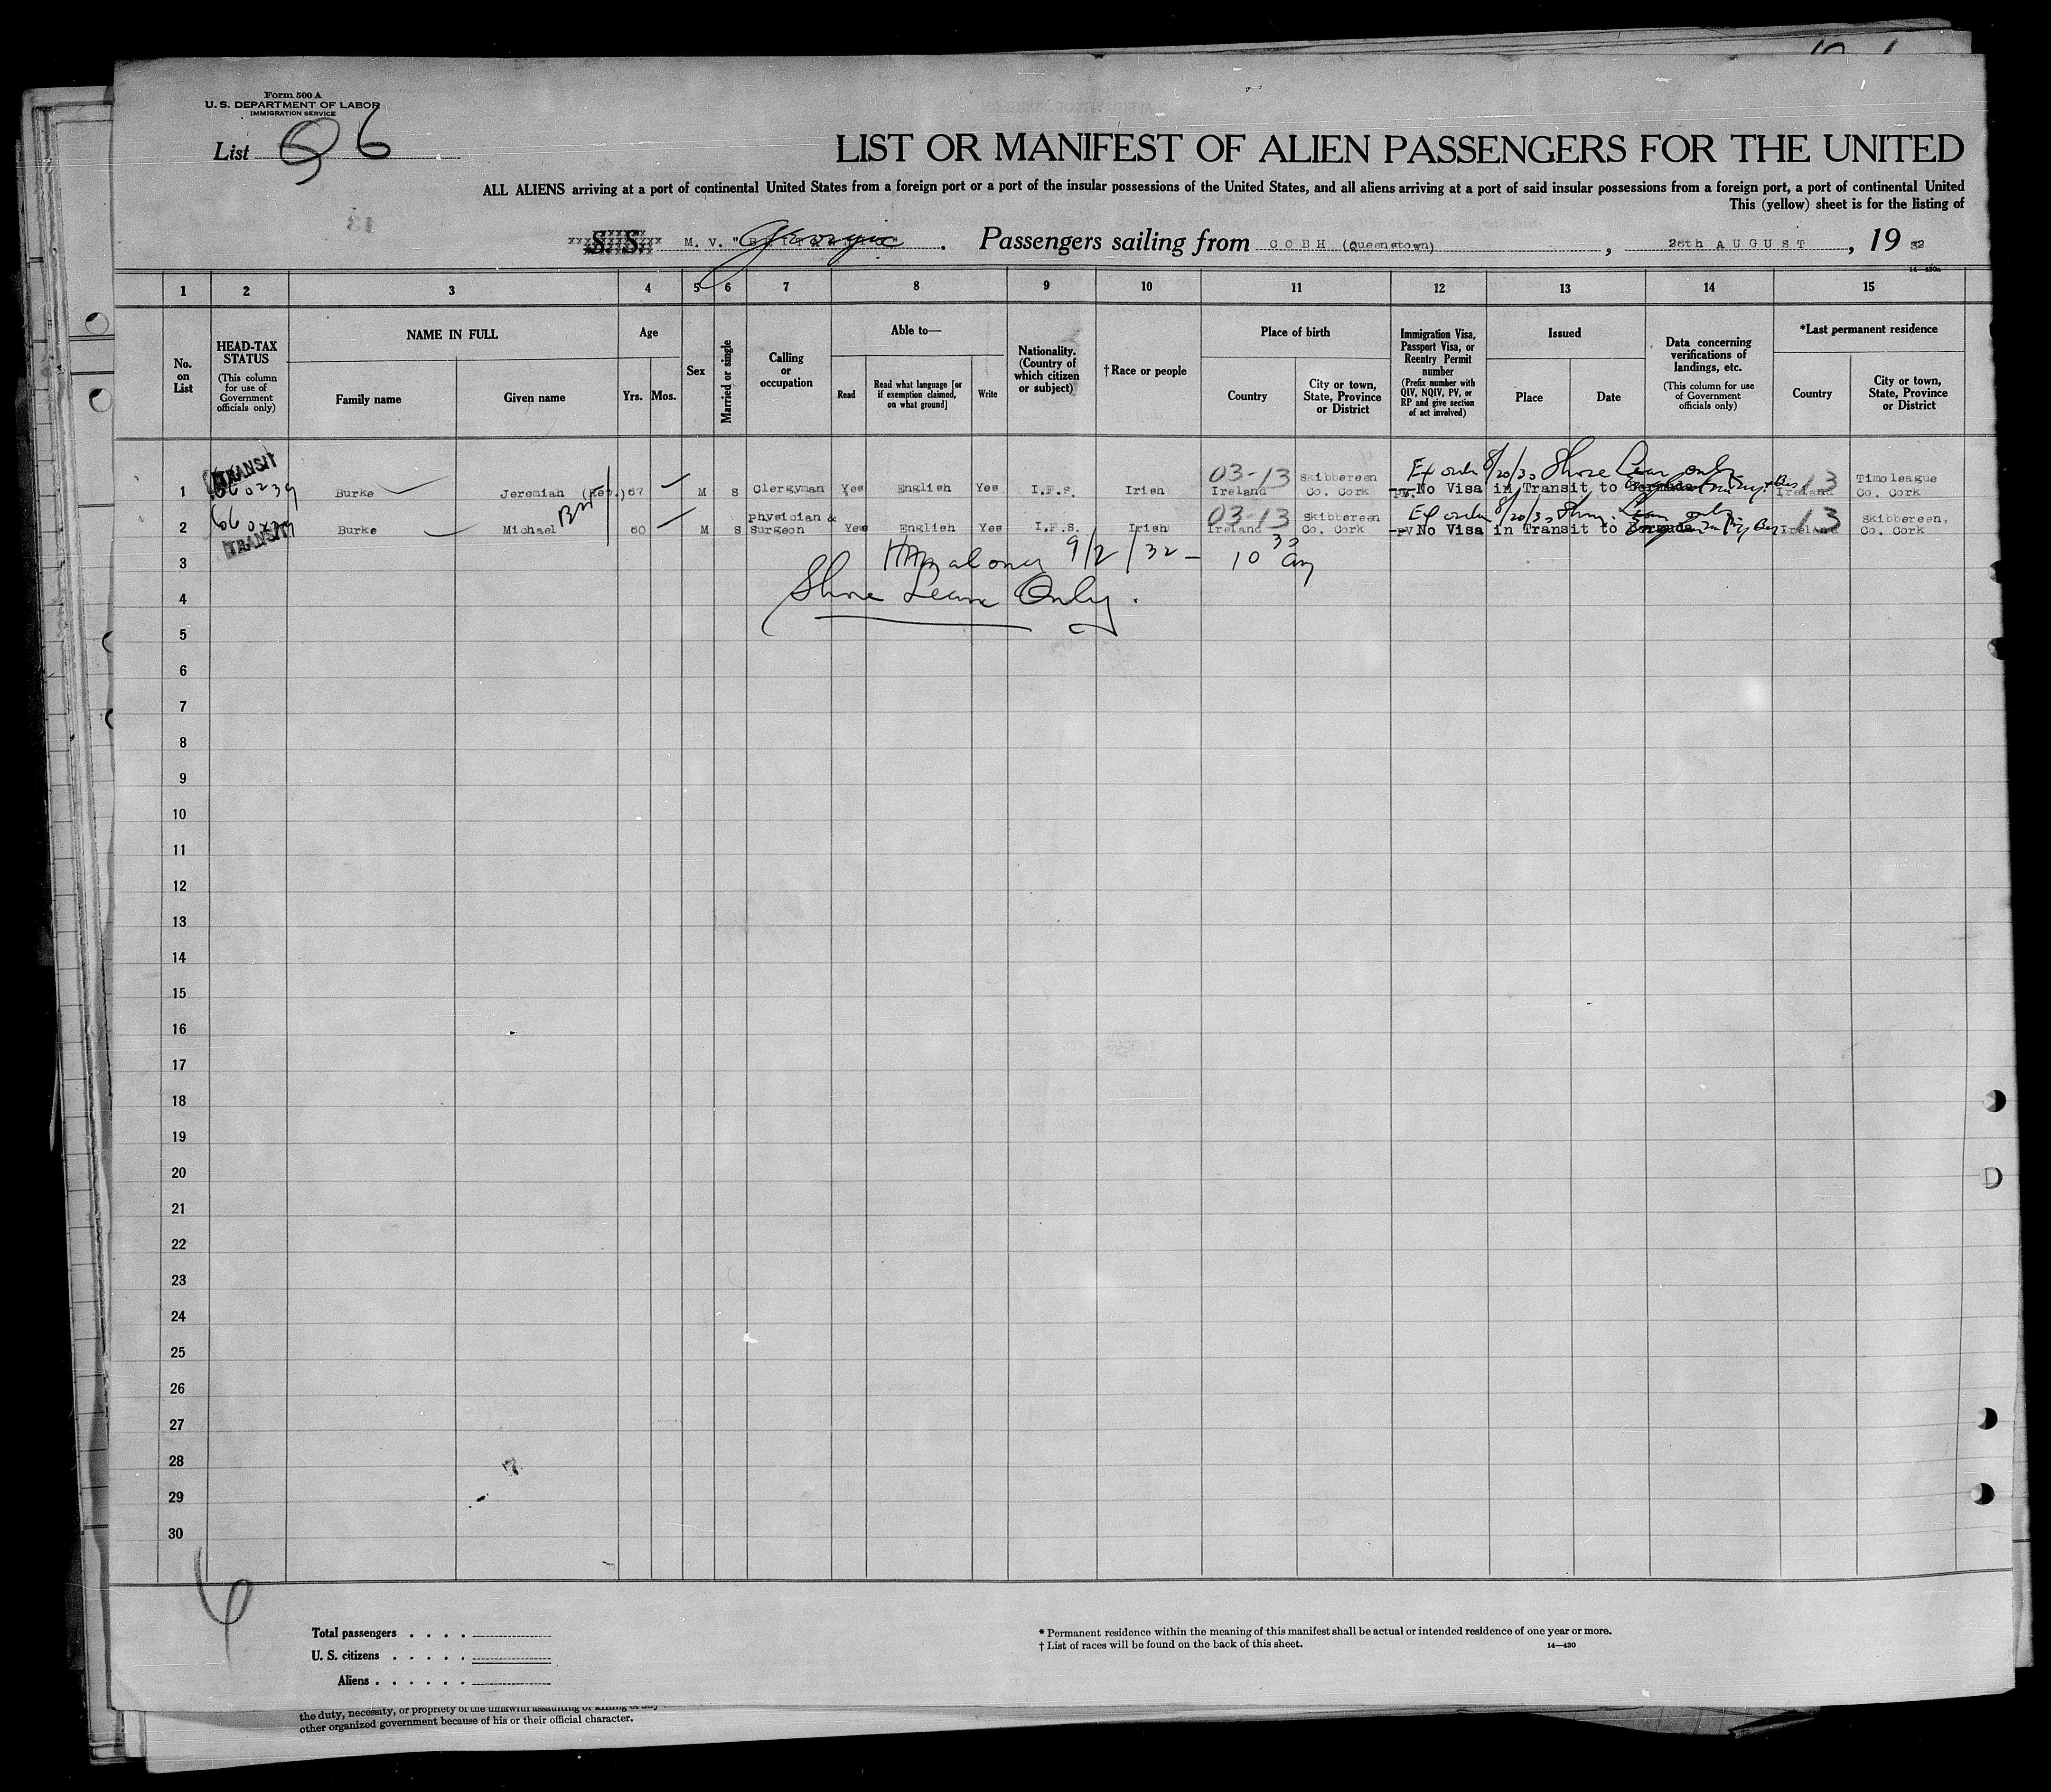 Form 500 A
U. S. DEPARTMENT OF LABOR
IMMIGRATION SERVICE
List 6
LIST OR MANIFEST OF ALIEN PASSENGERS FOR THE UNITED
ALL ALIENS arriving at a port of continental United States from a foreign port or a port of the insular possessions of the United States, and all aliens arriving at a port of said insular possessions from a foreign port, a port of continental United
This (yellow) sheet is for the listing of
S. S. M. V. " Georgic " . Passengers sailing from COBH (Queenstown) , AUGUST , 19 32
14—430a
1 2 3 4 5 6 7 8 9 10 11 12 13 14 15
No. on List
HEAD-TAX STATUS (This column for use of Government officials only)
NAME IN FULL
Family name Given name
Age
Yrs. Mos.
Sex
Married or single
Calling or occupation
Able to—
Read Read what language [or if exemption claimed, on what ground] Write
Nationality. (Country of which citizen or subject)
†Race or people
Place of birth
Country City or town, State, Province or District
Immigration Visa, Passport Visa, or Reentry Permit number (Prefix number with QIV, NQIV, PV, or RP and give section of act involved)
Issued
Place Date
Data concerning verifications of landings, etc. (This column for use of Government officials only)
*Last permanent residence
Country City or town, State, Province or District
TRANSIT
660239 03-13 Shore Leave only 13
1 Burke Jeremiah (Rev.) 67 M S Clergyman Yes English Yes I.F.S. Irish Ireland Skibbereen Co. Cork No Visa in Transit to Bermuda Ireland Timoleague Co. Cork
03-13 8/20/3 only 13
2 Burke Michael 60 M S physician & Surgeon Yes English Yes I.F.S. Irish Ireland Skibbereen Co. Cork PV No Visa in Transit to Bermuda Ireland Skibbereen, Co. Cork
TRANSIT
3 9/2/32 – 10 30 am
4 Shore Leave Only.
5
6
7
8
9
10
11
12
13
14
15
16
17
18
19
20
21
22
23
24
25
26
27
28
29
30
6
Total passengers . . . .
U. S. citizens . . . . .
Aliens . . . . . .
* Permanent residence within the meaning of this manifest shall be actual or intended residence of one year or more.
† List of races will be found on the back of this sheet. 14—430
the duty, necessity, or propriety of the unlawful assaulting or killing of any
other organized government because of his or their official character.